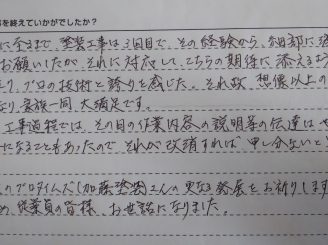 を終えていかがでしたか？
に至るまで、塗装工事は3回目で、その経験から、各部に
お願いしたが、それに対応して、こちらの期待に添えるよう
り、プロの技術と誇りを感じた。それ故、想像以上の
なり、家族一同大満足です。
工事過程では、その日の作業内容の説明等の伝達は
になることもあったので、それが改消すれば、申し分ないと
のプロタイムズ(加藤塗装)さんの更なる発展をお祈りします
め、従業員の皆様、お世話になりました。